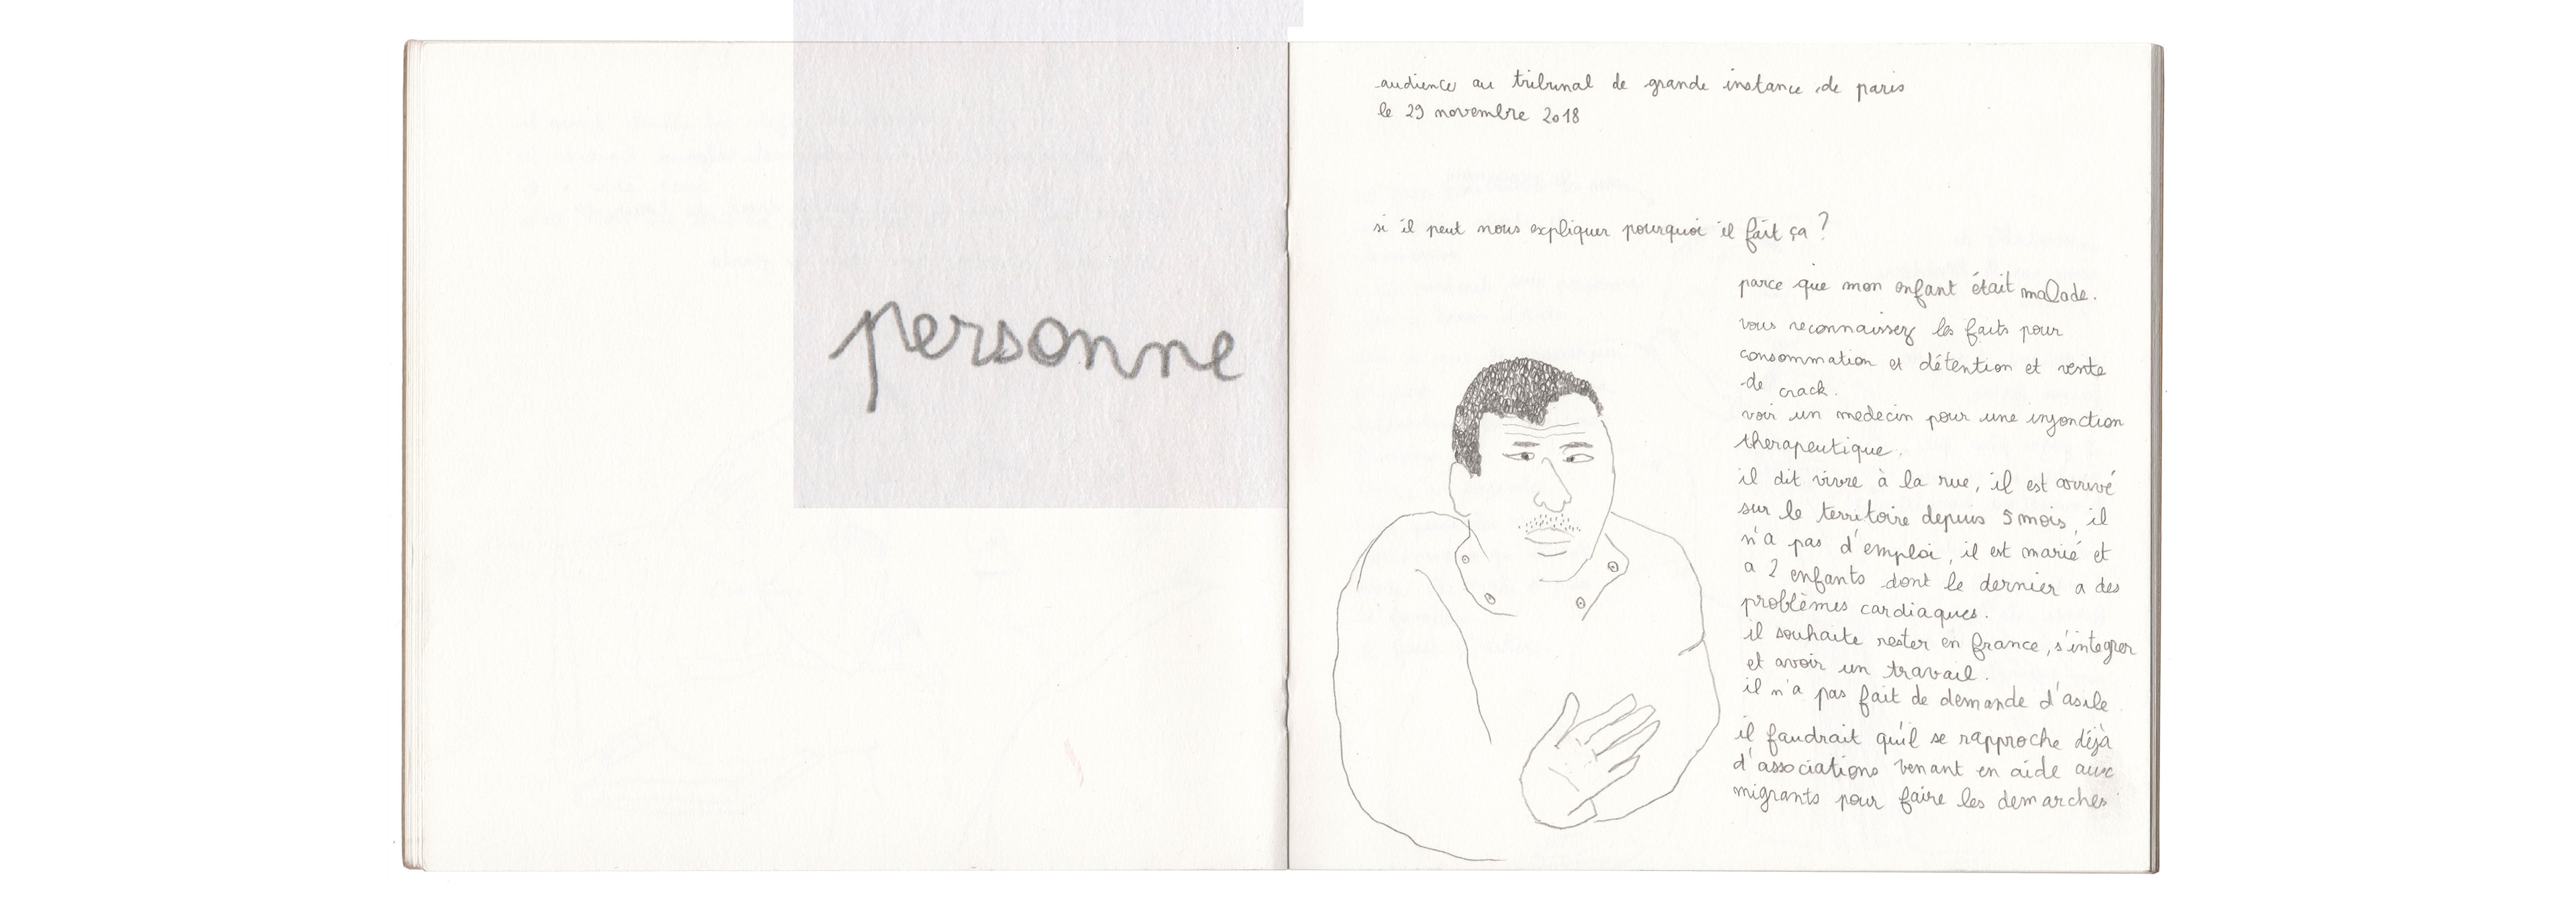 personne
audience au tribunal de grande instance de paris
le 29 novembre 2018
si il peut nous expliquer pourquoi il fait ça ?
parce que mon enfant était malade.
vous reconnaissez les faits pour
consommation et détention et vente
de crack.
voir un medecin pour une injonction
therapeutique.
il dit vivre à la rue, il est arrivé
sur le territoire depuis 5 mois, il
n'a pas d'emploi, il est marié et
a 2 enfants dont le dernier a des
problèmes cardiaques.
il souhaite rester en france, s'integrer
et avoir un travail.
il n'a pas fait de demande d'asile
il faudrait qu'il se rapproche déjà
d'associations venant en aide aux
migrants pour faire les demarches